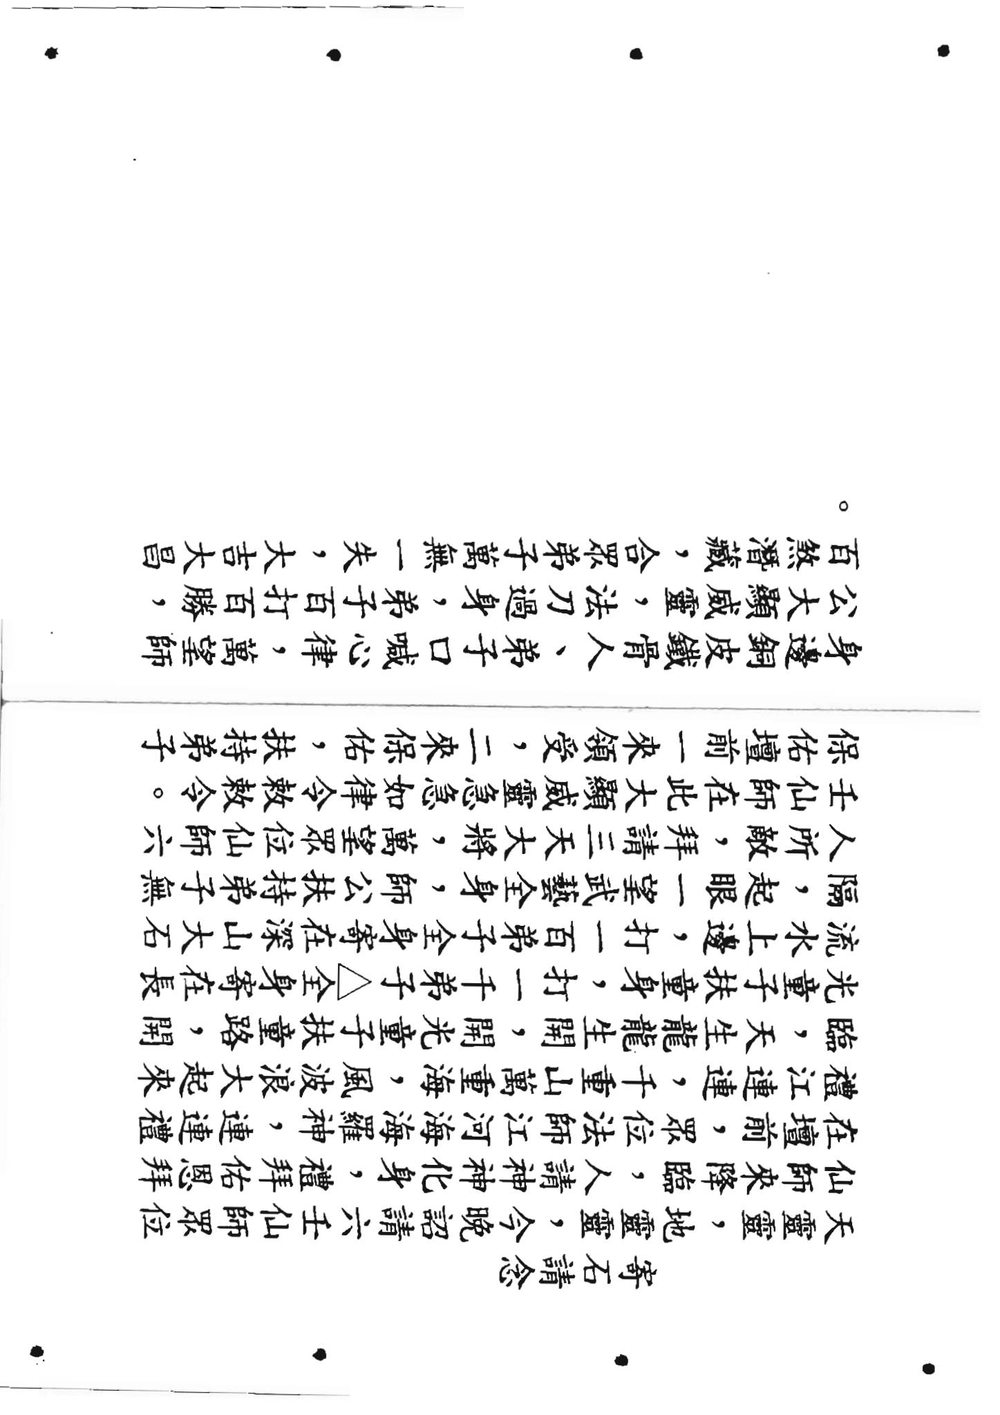 寄石請念
天靈靈，地靈靈，今晚詔請六壬仙師眾位
仙師來降臨，人請神神化身，禮拜佑恩拜
在壇前，眾位法師江河海海羅神，連連禮
禮江連連，千重山萬重海，風波浪大起來
臨，天生龍龍生開，開光童子扶童路，開
光童子扶童身，打一千弟子△全身寄在長
流水上邊，打一百弟子全身寄在深山大石
隔，起眼一望武藝全身，師公扶持弟子無
人所敵，拜請三天大將，萬望眾位仙師六
壬仙師在此大顯威靈急急如律令敕敕令。
保佑壇前一來領受，二來保佑，扶持弟子
身邊銅皮鐵骨人、弟子口喊心律，萬望師
公大顯威靈，法刀過身，弟子百打百勝，
百煞潛藏，合眾弟子萬無一失，大吉大昌
。